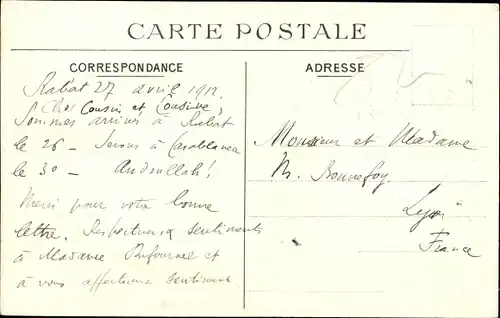 CARTE POSTALE
CORRESPONDANCE
ADRESSE
Rabat 27 avril 1912
Cher Cousin et Cousine,
Sommes arrivés à Rabat
le 26 - Serons à Casablanca
le 30 -
Merci pour votre bonne
lettre. Respectueux sentiments
à Madame et
à vous affectueux sentiments
Monsieur et Madame
M. Bonnefoy
Lyon
France